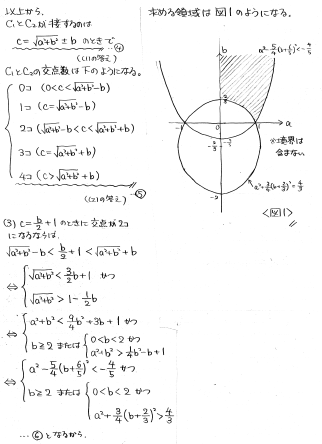 以上から、
C₁とC₂が接するのは
c = √a²+b² ± b のときで …④
(C(1)の答え)
C₁とC₂の交点数は下のようになる。
0コ (0<c<√a²+b²-b)
1コ (c=√a²+b²-b)
2コ (√a²+b²-b<c<√a²+b²+b)
3コ (c=√a²+b²+b)
4コ (c>√a²+b²+b)
(C(2)の答え) …⑤
(3) c=b/2+1のときに交点が2コ
になるならば、
√a²+b²-b < b/2+1 < √a²+b²+b
⇔ { √a²+b² < 3/2b+1 かつ
√a²+b² > 1-1/2b
⇔ { a²+b² < 9/4b²+3b+1 かつ
b≧2 または { 0<b<2 かつ
a²+b² > 1/4b²-b+1
⇔ { a²-5/4(b+6/5)² < -4/5 かつ
b≧2 または { 0<b<2 かつ
a²+3/4(b+2/3)² > 4/3
…⑥となるから、
求める領域は図1のようになる。
b
a²-5/4(b+6/5)²<-4/5
2/3
-1 0 1 a
-2/3
-2
※境界は
含まない
a²+3/4(b+2/3)²=4/3
<図1>